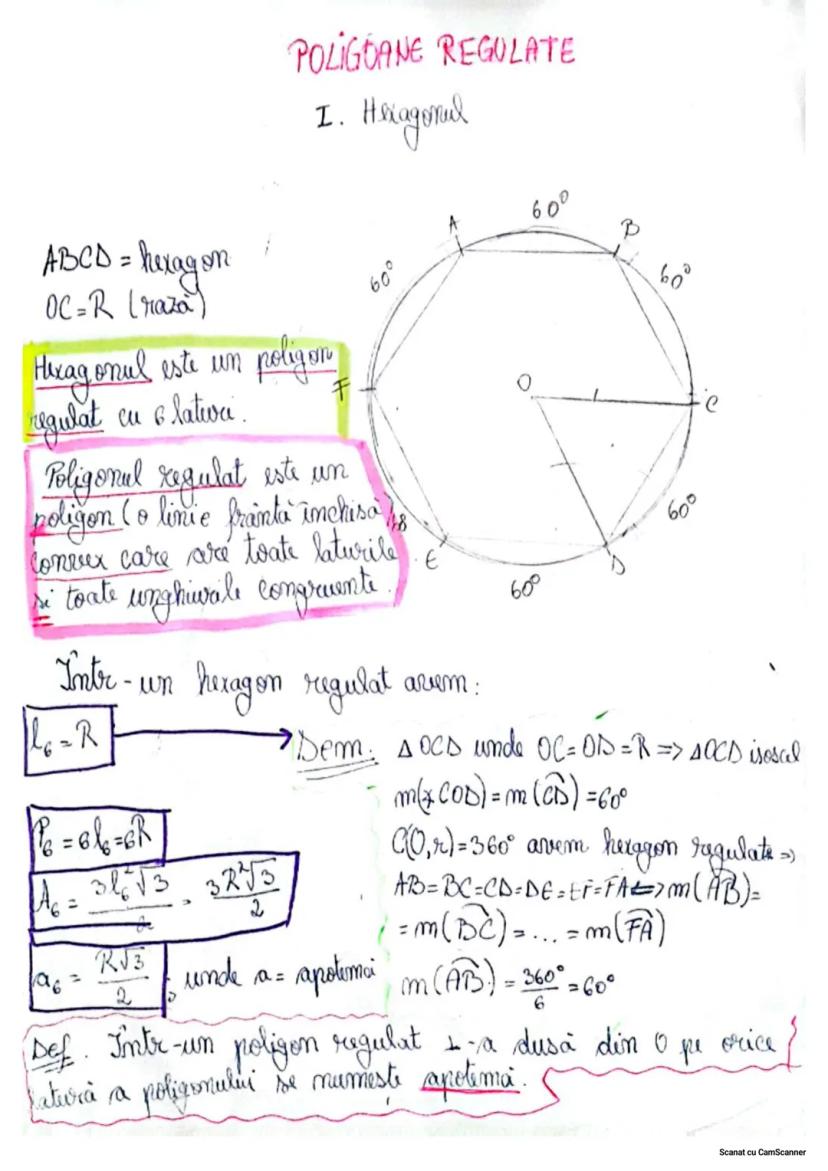 POLIGOANE REGULATE
I. Hexagonul
ABCD = hexagon
OC = R (rază)
Hexagonul este un poligon
regulat cu 6 laturi.
Poligonul regulat este un
poligon (o linie frântă închisă)
convex care are toate laturile
și toate unghiurile congruente.
A
60°
B
60°
60°
F
O
C
60°
E
60°
D
Într-un hexagon regulat avem:
l₆ = R
Dem: Δ OCD unde OC = OD = R => ΔOCD isoscel
m(∢COD) = m(C͡D) = 60°
C(O,r) = 360° avem hexagon regulat =>
AB = BC = CD = DE = EF = FA <=> m(A͡B) =
= m(B͡C) = ... = m(F͡A)
m(A͡B) = 360°/6 = 60°
P₆ = 6l₆ = 6R
A₆ = 3l₆²√3/2 = 3R²√3/2
a₆ = R√3/2, unde a = apotema
Def. Într-un poligon regulat ⊥-a dusă din O pe orice
latură a poligonului se numește apotemă.
Scanat cu CamScanner